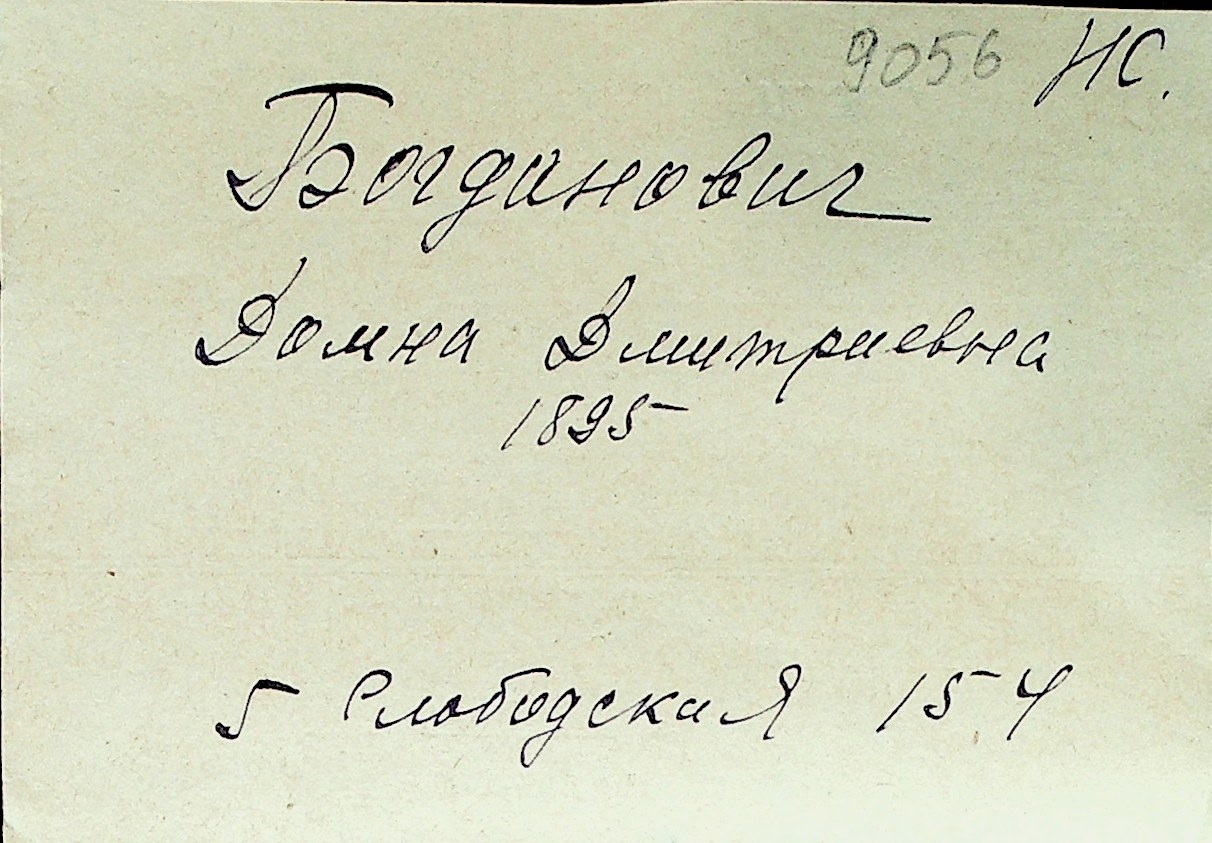 9056 НС.
Богданович
Домна Дмитриевна
1895
5 Слободская 154